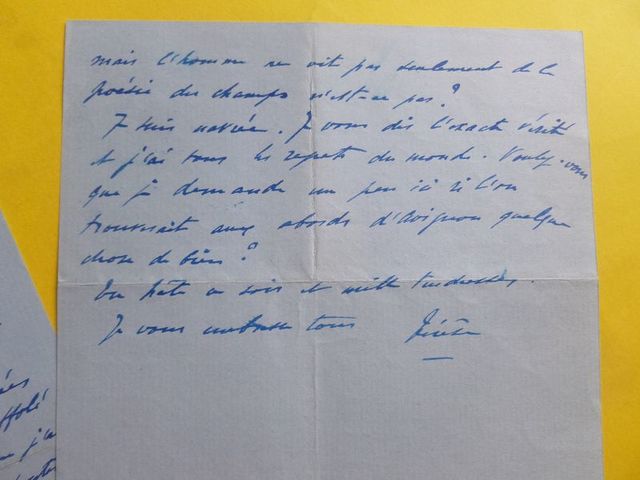 mais l'homme ne vit pas seulement de la
poésie des champs n'est-ce pas ?
Je suis navrée. Je vous dis l'exacte vérité
et j'ai tous les regrets du monde. Voulez-vous
que je demande un peu ici si l'on
trouverait aux abords d'Avignon quelque
chose de bien ?
En hâte ce soir et mille tendresses.
Je vous embrasse tous
ées
affolé
j'ai